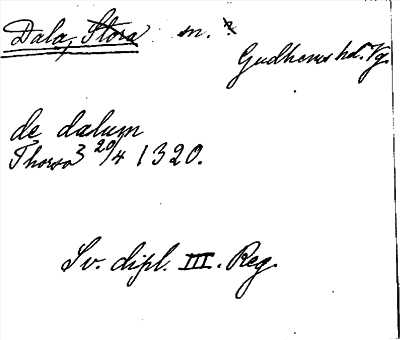 Dala, Stora sn.
Gudhems hd. Vg.
de dalum
Thorso 3 20/4 1320.
Sv. dipl. III. Reg.